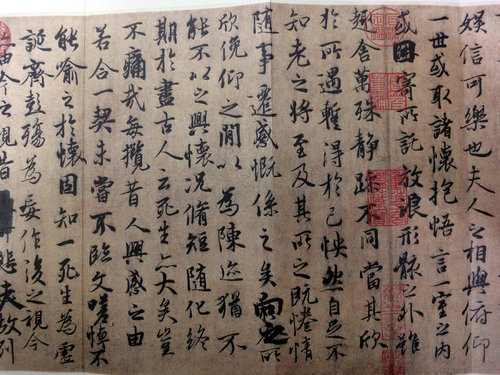 娛信可樂也夫人之相與俯仰
一世或取諸懷抱悟言一室之內
或因寄所託放浪形骸之外雖
趣舍萬殊靜躁不同當其欣
於所遇暫得於己怏然自足不
知老之將至及其所之既惓情
隨事遷感慨係之矣向之所
欣俛仰之閒以為陳迹猶不
能不以之興懷況脩短隨化終
期於盡古人云死生亦大矣豈
不痛哉每攬昔人興感之由
若合一契未嘗不臨文嗟悼不
能喻之於懷固知一死生為虛
誕齊彭殤為妄作後之視今
由今之視昔悲夫故列